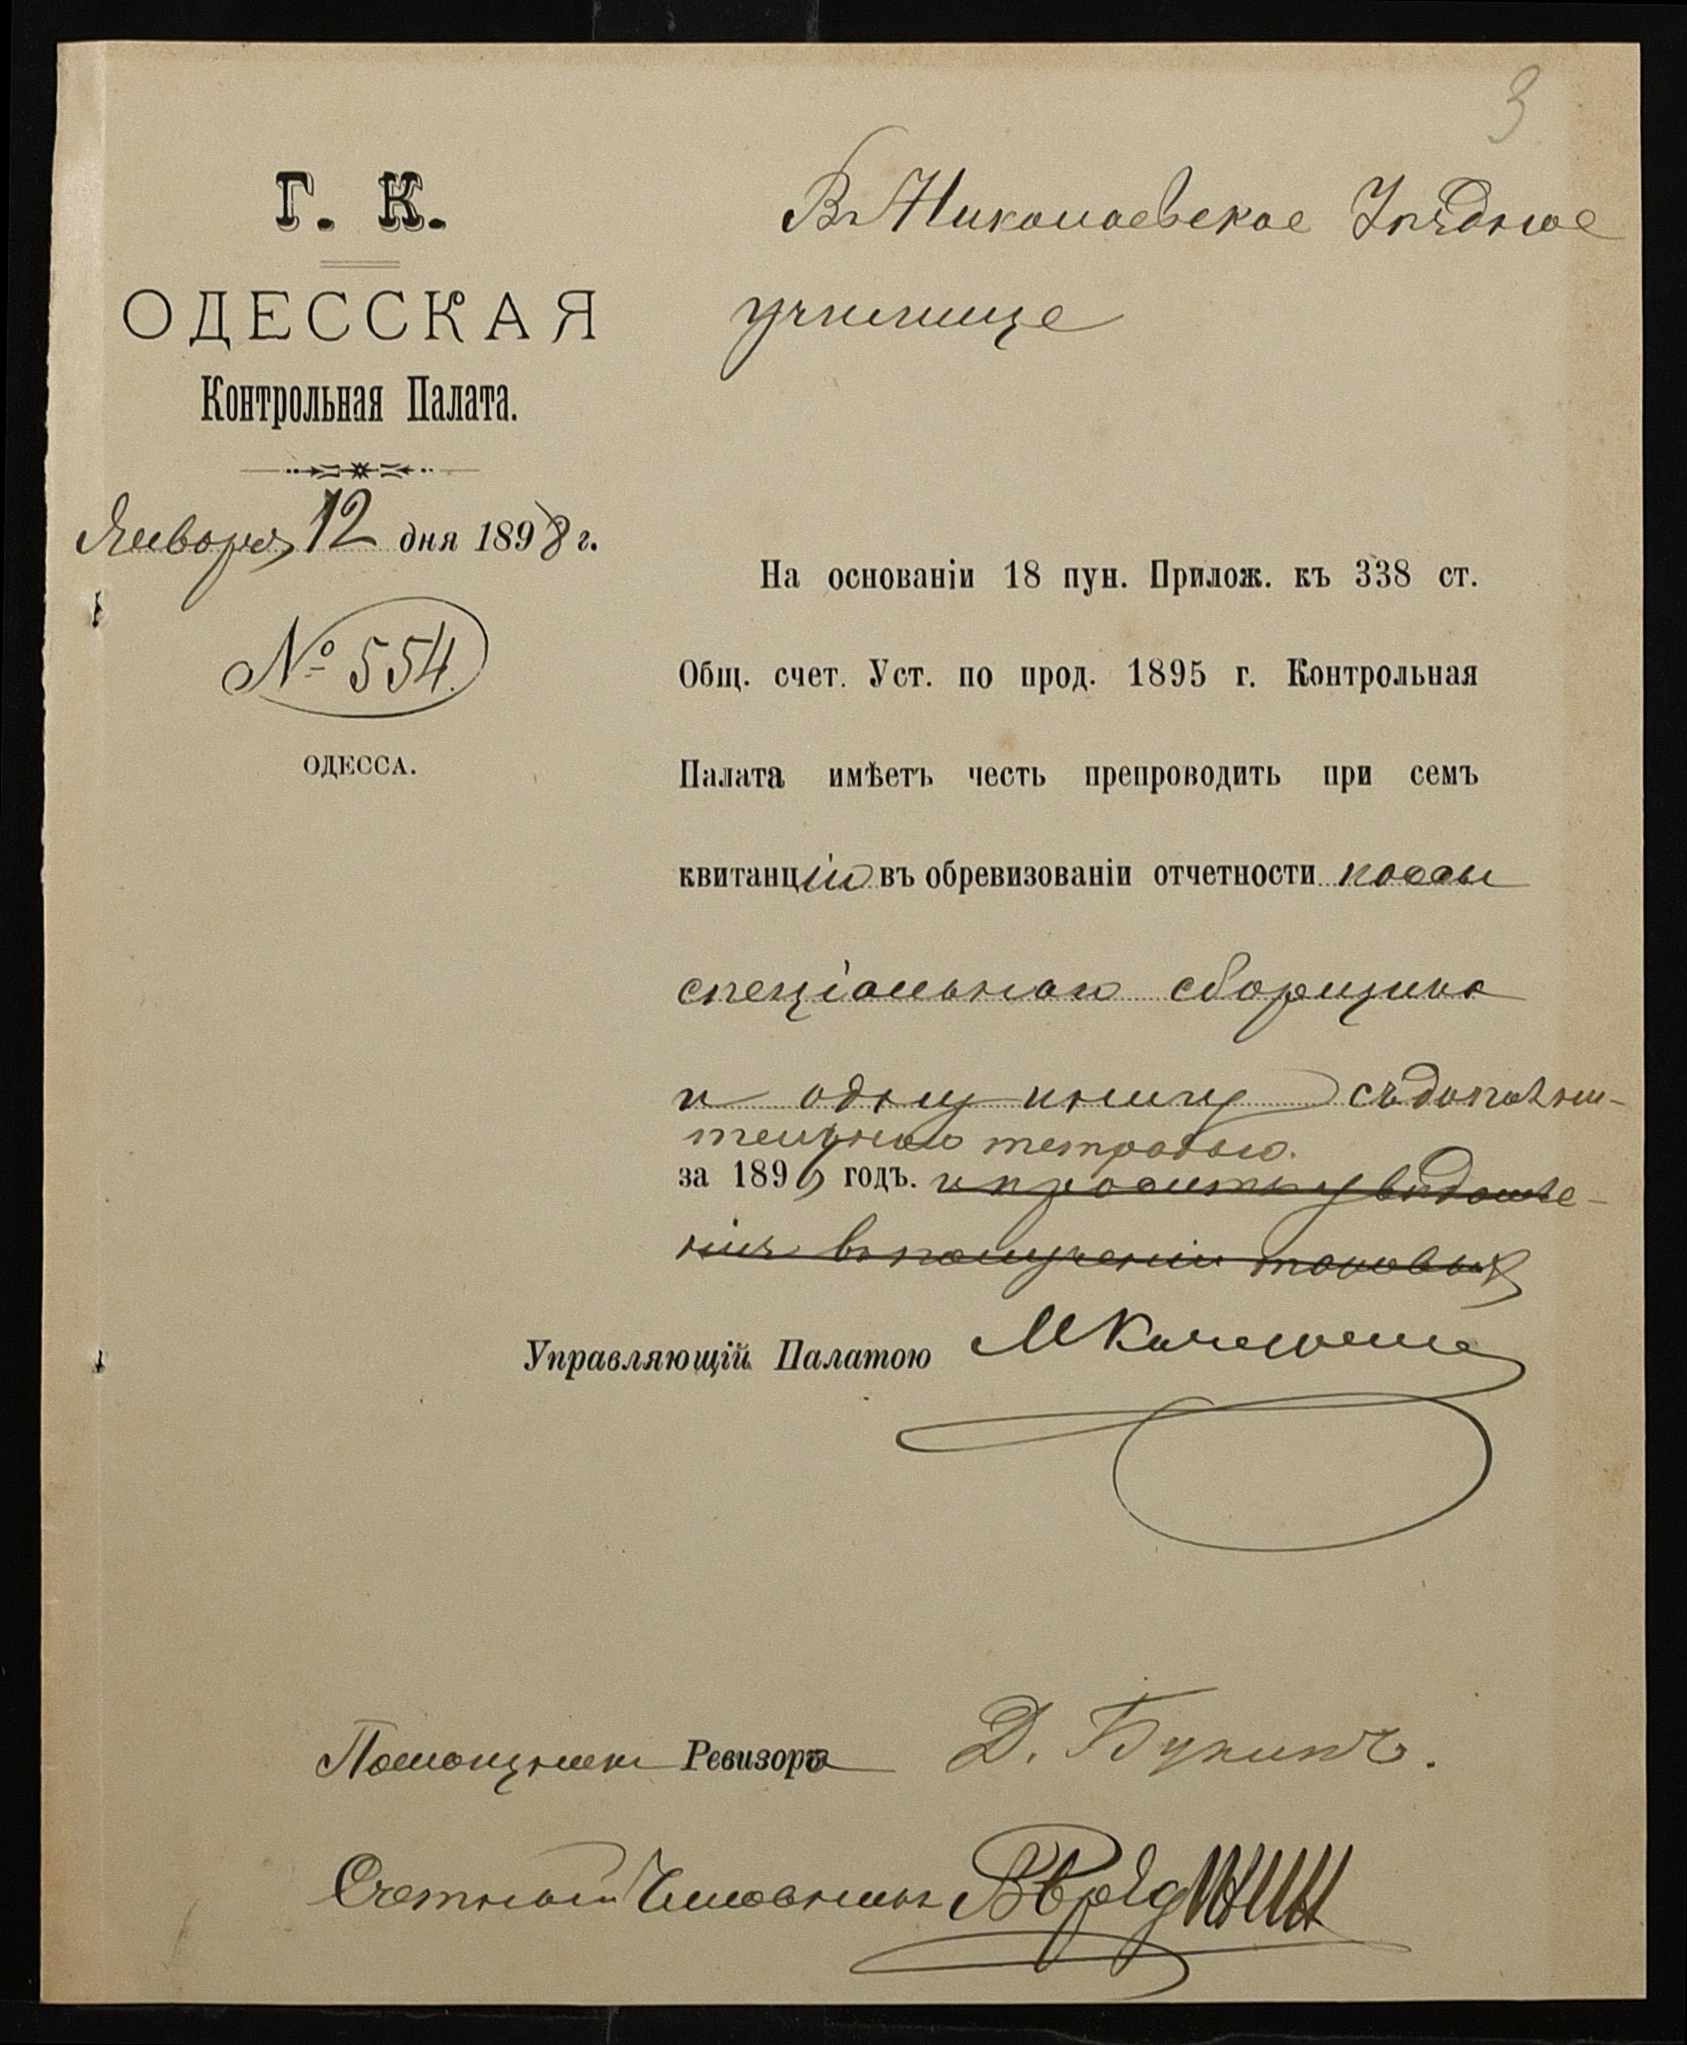 3
Г. К.
ОДЕССКАЯ
Контрольная Палата.
Января 12 дня 1898 г.
№ 554.
ОДЕССА.
Въ Николаевское Уѣздное
училище
На основаніи 18 пун. Прилож. къ 338 ст.
Общ. счет. Уст. по прод. 1895 г. Контрольная
Палата имѣетъ честь препроводить при семъ
квитанцію въ обревизованіи отчетности кассы
спеціальнаго сборщика
и одну книгу съ дополни-
тельною тетрадью.
за 1896 годъ. и проситъ увѣдомле-
нія въ полученіи таковых
Управляющій Палатою
Помощникъ Ревизора Д. Букинъ.
Счетный Чиновникъ